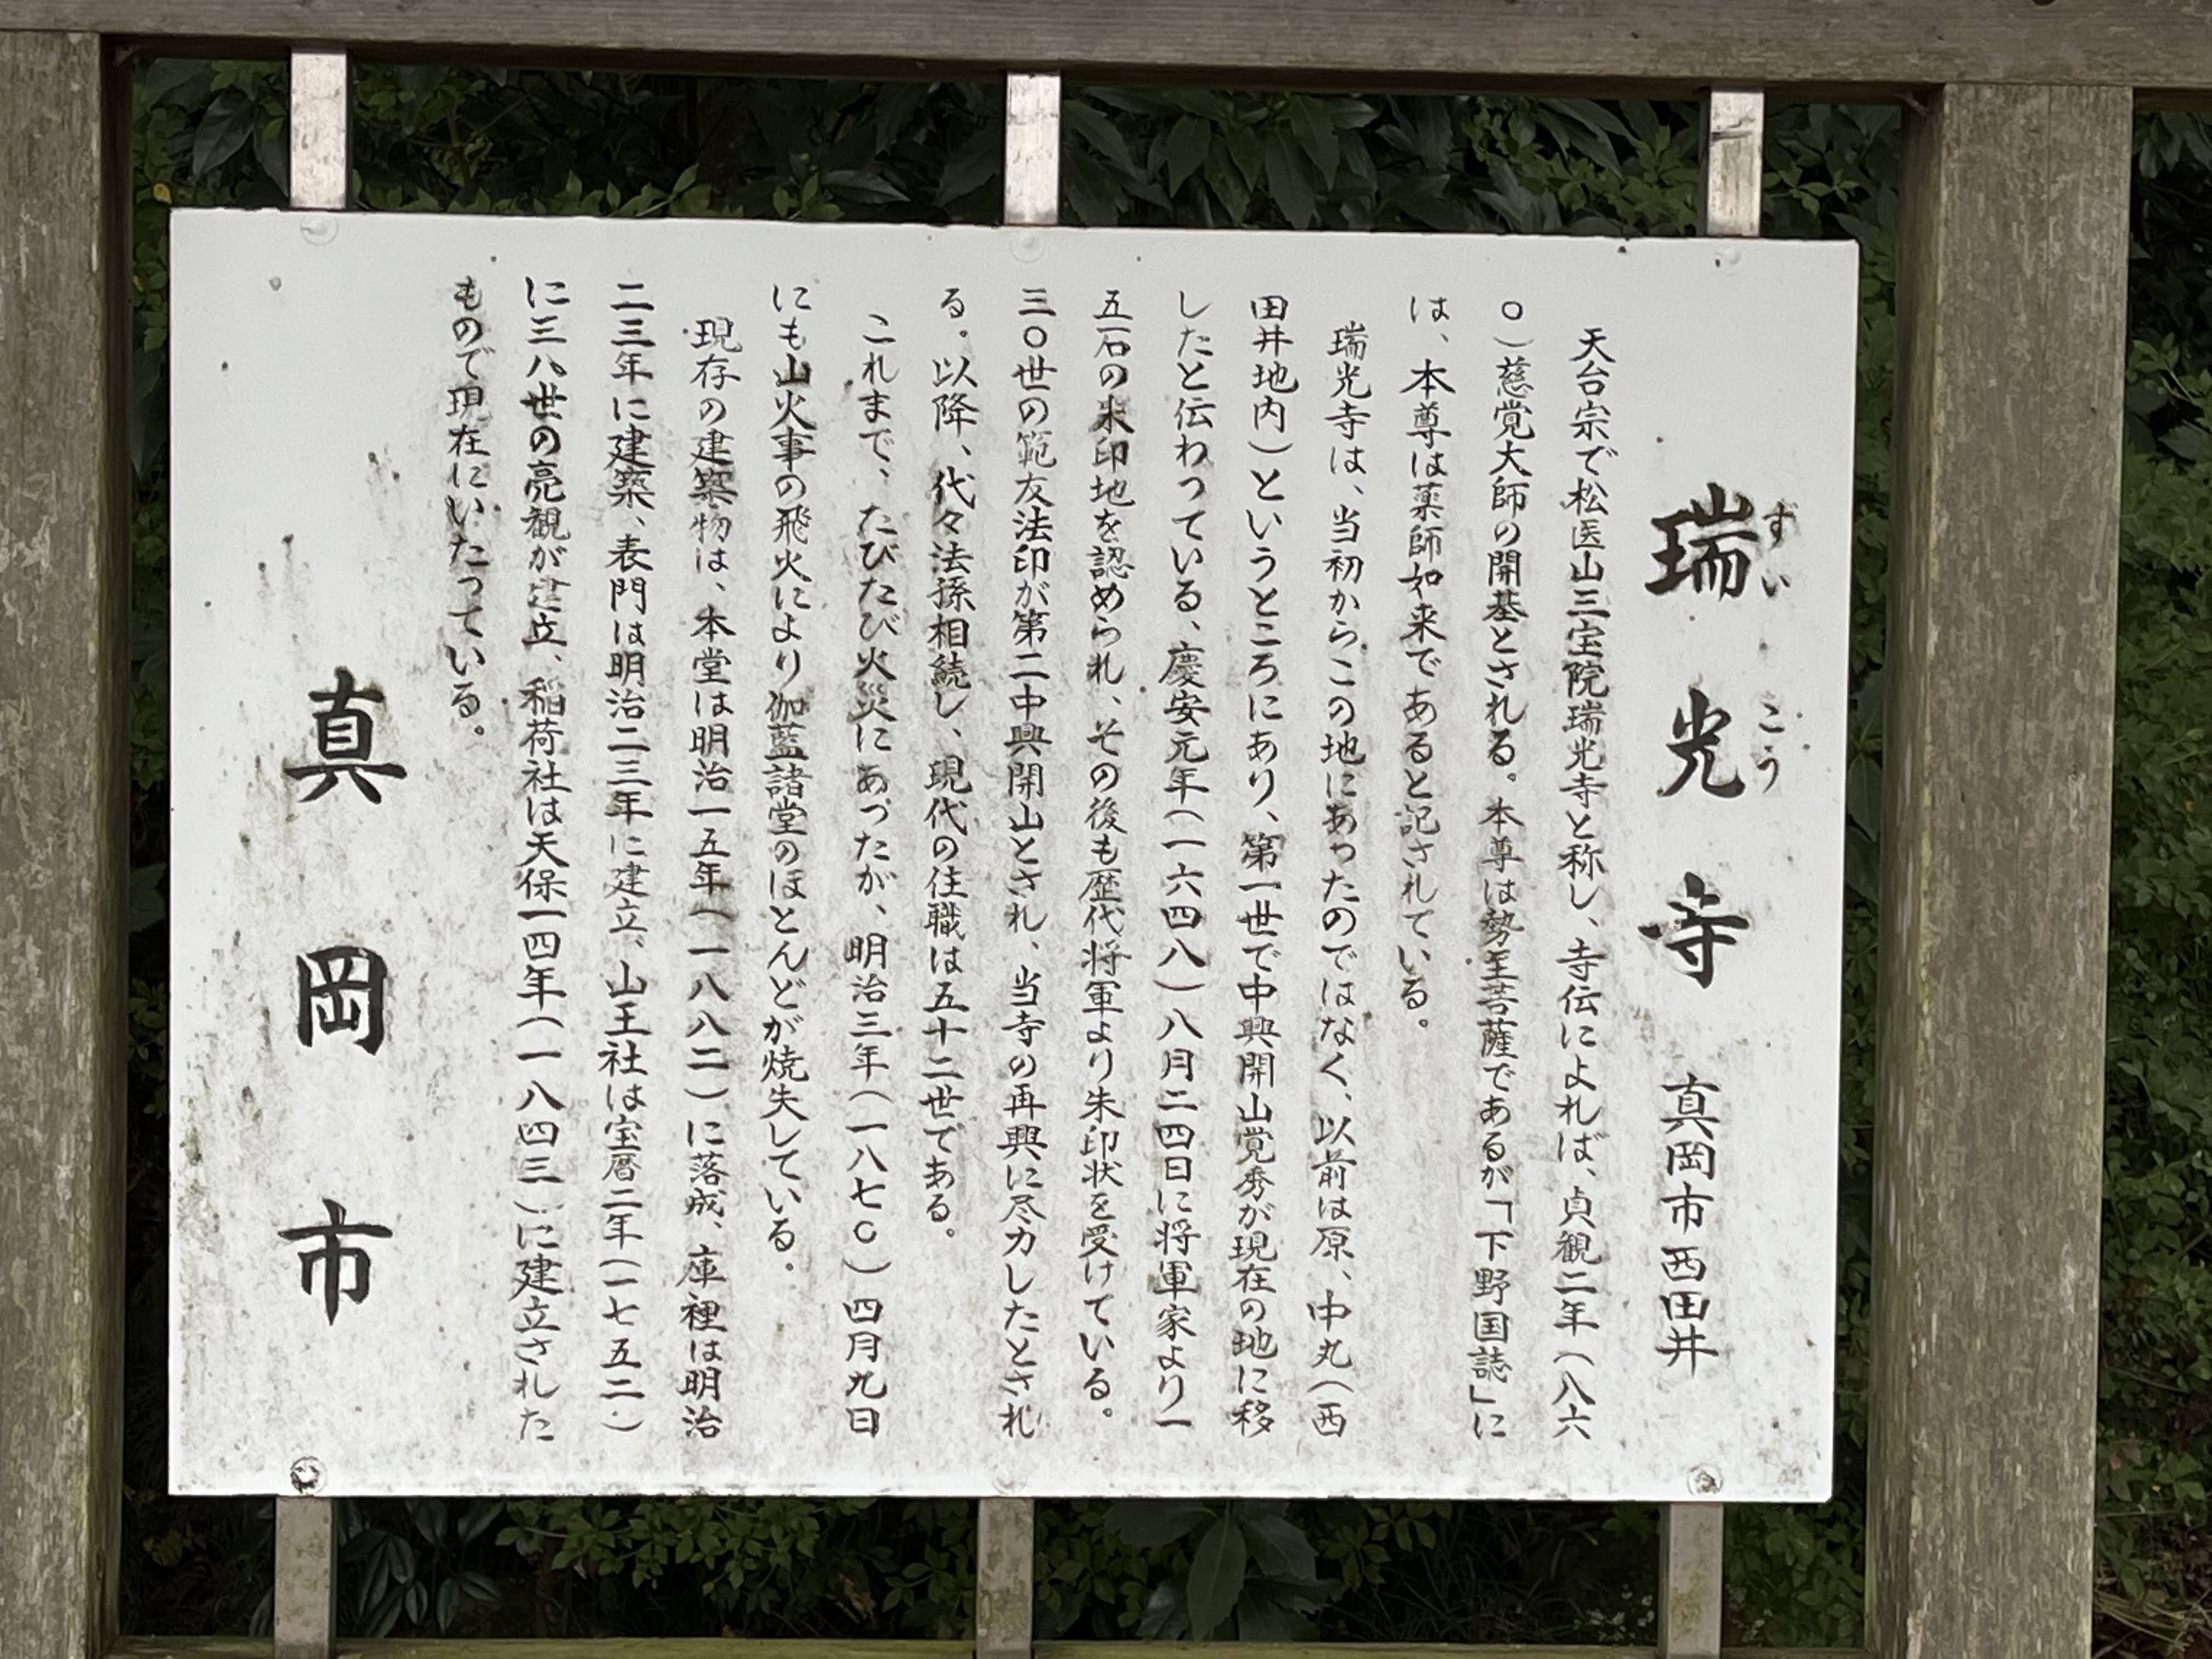 瑞光寺 真岡市西田井
ずい こう
天台宗で松医山三宝院瑞光寺と称し、寺伝によれば、貞観二年(八六
〇)慈覚大師の開基とされる。本尊は勢至菩薩であるが「下野国誌」に
は、本尊は薬師如来であると記されている。
瑞光寺は、当初からこの地にあったのではなく、以前は原、中丸(西
田井地内)というところにあり、第一世で中興開山覚秀が現在の地に移
したと伝わっている、慶安元年(一六四八)八月二四日に将軍家より一
五石の朱印地を認められ、その後も歴代将軍より朱印状を受けている。
三〇世の範友法印が第二中興開山とされ、当寺の再興に尽力したとされ
る。以降、代々法孫相続し、現代の住職は五十二世である。
これまで、たびたび火災にあったが、明治三年(一八七〇)四月九日
にも山火事の飛火により伽藍諸堂のほとんどが焼失している。
現存の建築物は、本堂は明治一五年(一八八二)に落成、庫裡は明治
二三年に建築、表門は明治二三年に建立、山王社は宝暦二年(一七五二)
に三八世の亮観が建立、稲荷社は天保一四年(一八四三)に建立された
もので現在にいたっている。
真岡市